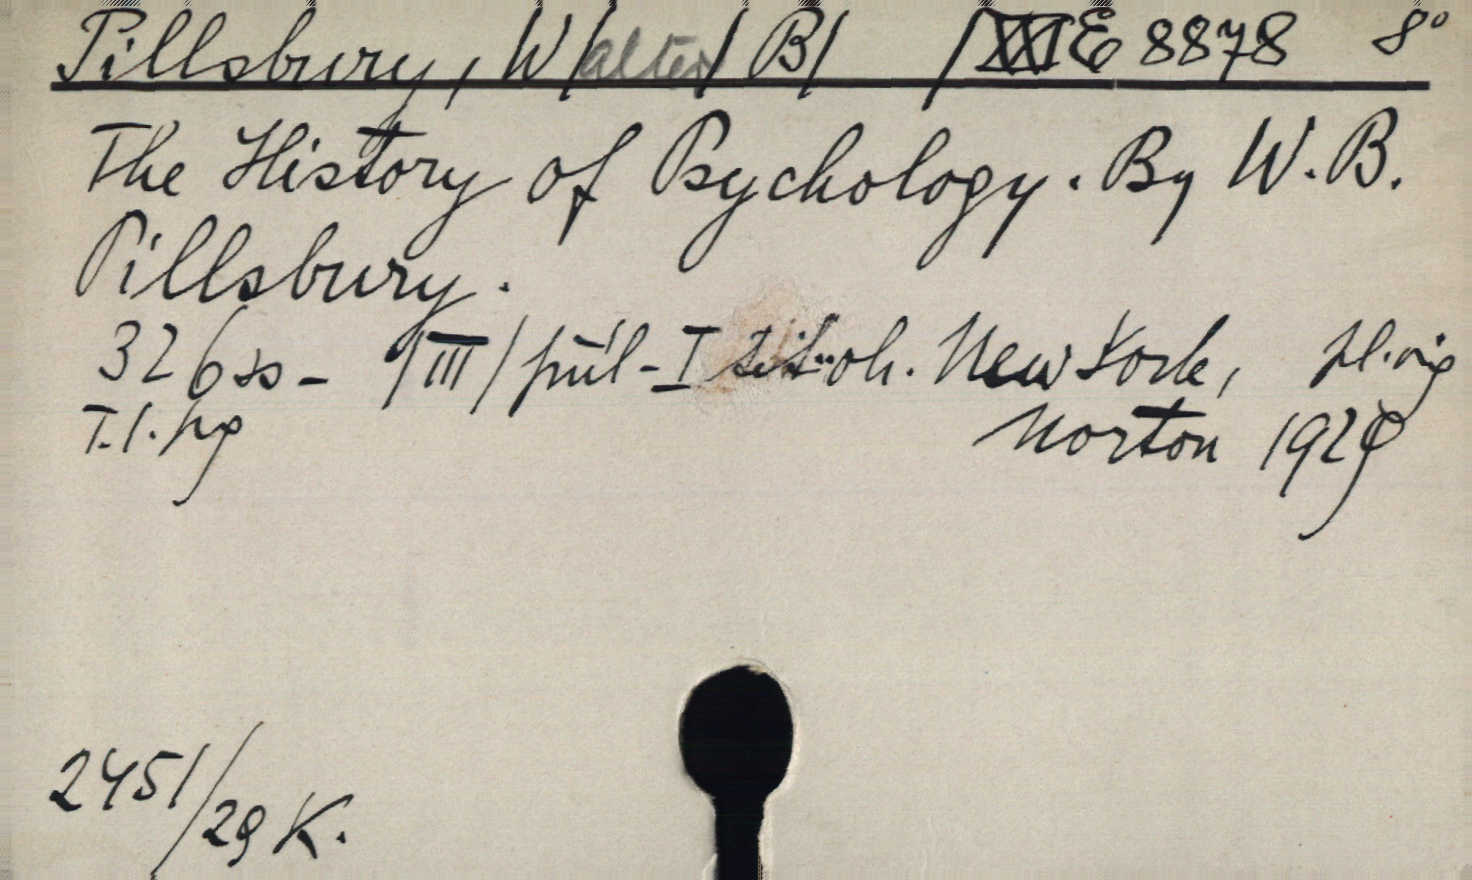 Pillsbury, W/alter/ B/ E 8878 8°
The History of Psychology. By W. B.
Pillsbury.
326 ss - III / I New York,
Norton 1929
2451/29 K.